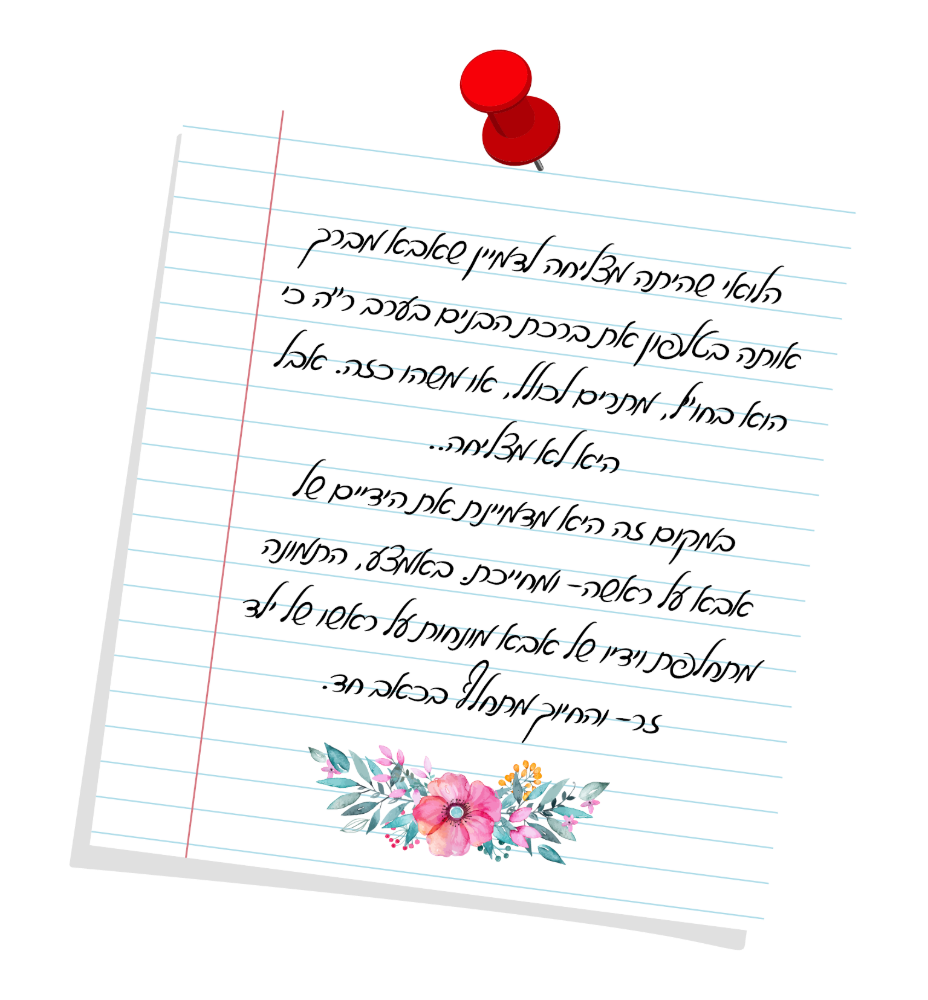 הלואי שהיתה מצליחה לדמיין שאבא מברך
אותה בטלפון את ברכת הבנים בערב ר״ה כי
הוא בחו״ל, מתרים לכולל, או משהו כזה. אבל
היא לא מצליחה..
במקום זה היא מדמיינת את הידיים של
אבא על ראשה- ומחייכת. באמצע, התמונה
מתחלפת וידיו של אבא מונחות על ראשו של ילד
זר- והחיוך מתחלף בכאב חד.